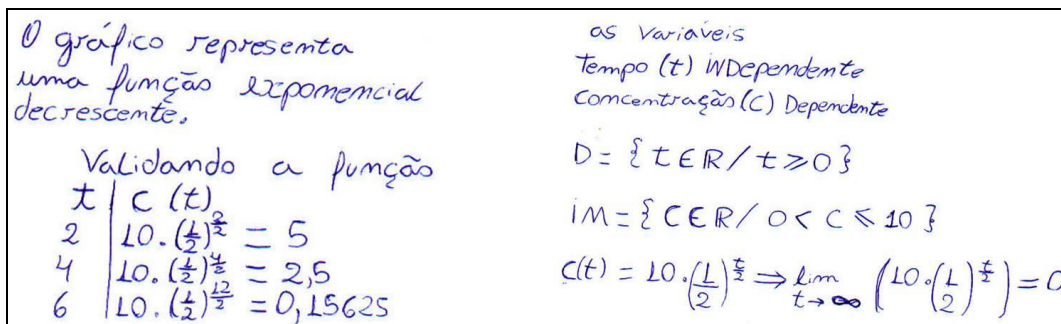 O gráfico representa
uma função exponencial
decrescente.
Validando a função
t | C (t)
2 | 10.(1/2)^(2/2) = 5
4 | 10.(1/2)^(4/2) = 2,5
6 | 10.(1/2)^(12/2) = 0,15625
as variáveis
Tempo (t) INDependente
Concentração (C) Dependente
D = { t ∈ R / t ≥ 0 }
iM = { C ∈ R / 0 < C ≤ 10 }
c(t) = 10.(1/2)^(t/2) ⇒ lim t→∞ (10.(1/2)^(t/2)) = 0